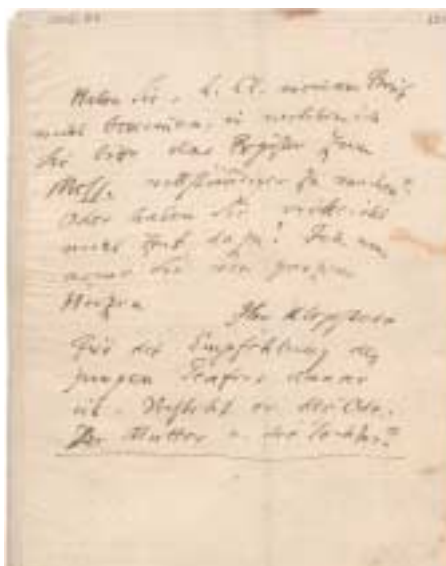 Haben Sie, l. Cl. meinen Brief
nicht bekommen, in welchem ich
Sie bitte das Register zum
Mess. vollständiger zu machen?
Oder haben Sie vielleicht
nicht Zeit dazu? Ich
Sie von ganzem
Herzen Ihr Klopstock
Für die Empfehlung des
jungen danke
ich. Versteht er die Ode.
Die Mutter u. die Tochter?